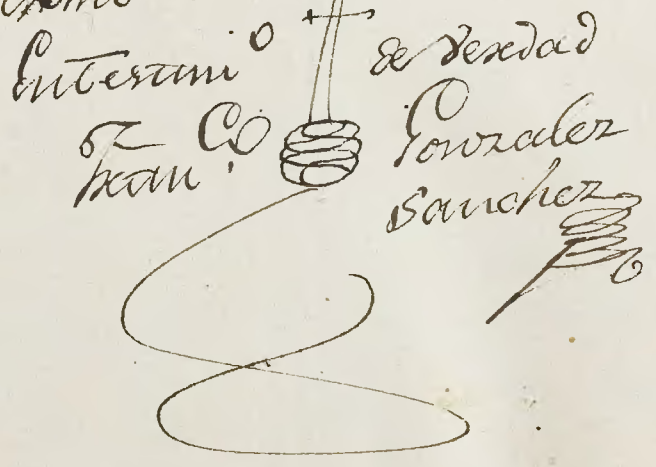 En testim.º de Verdad
Fran.co Gonzalez
Sanchez